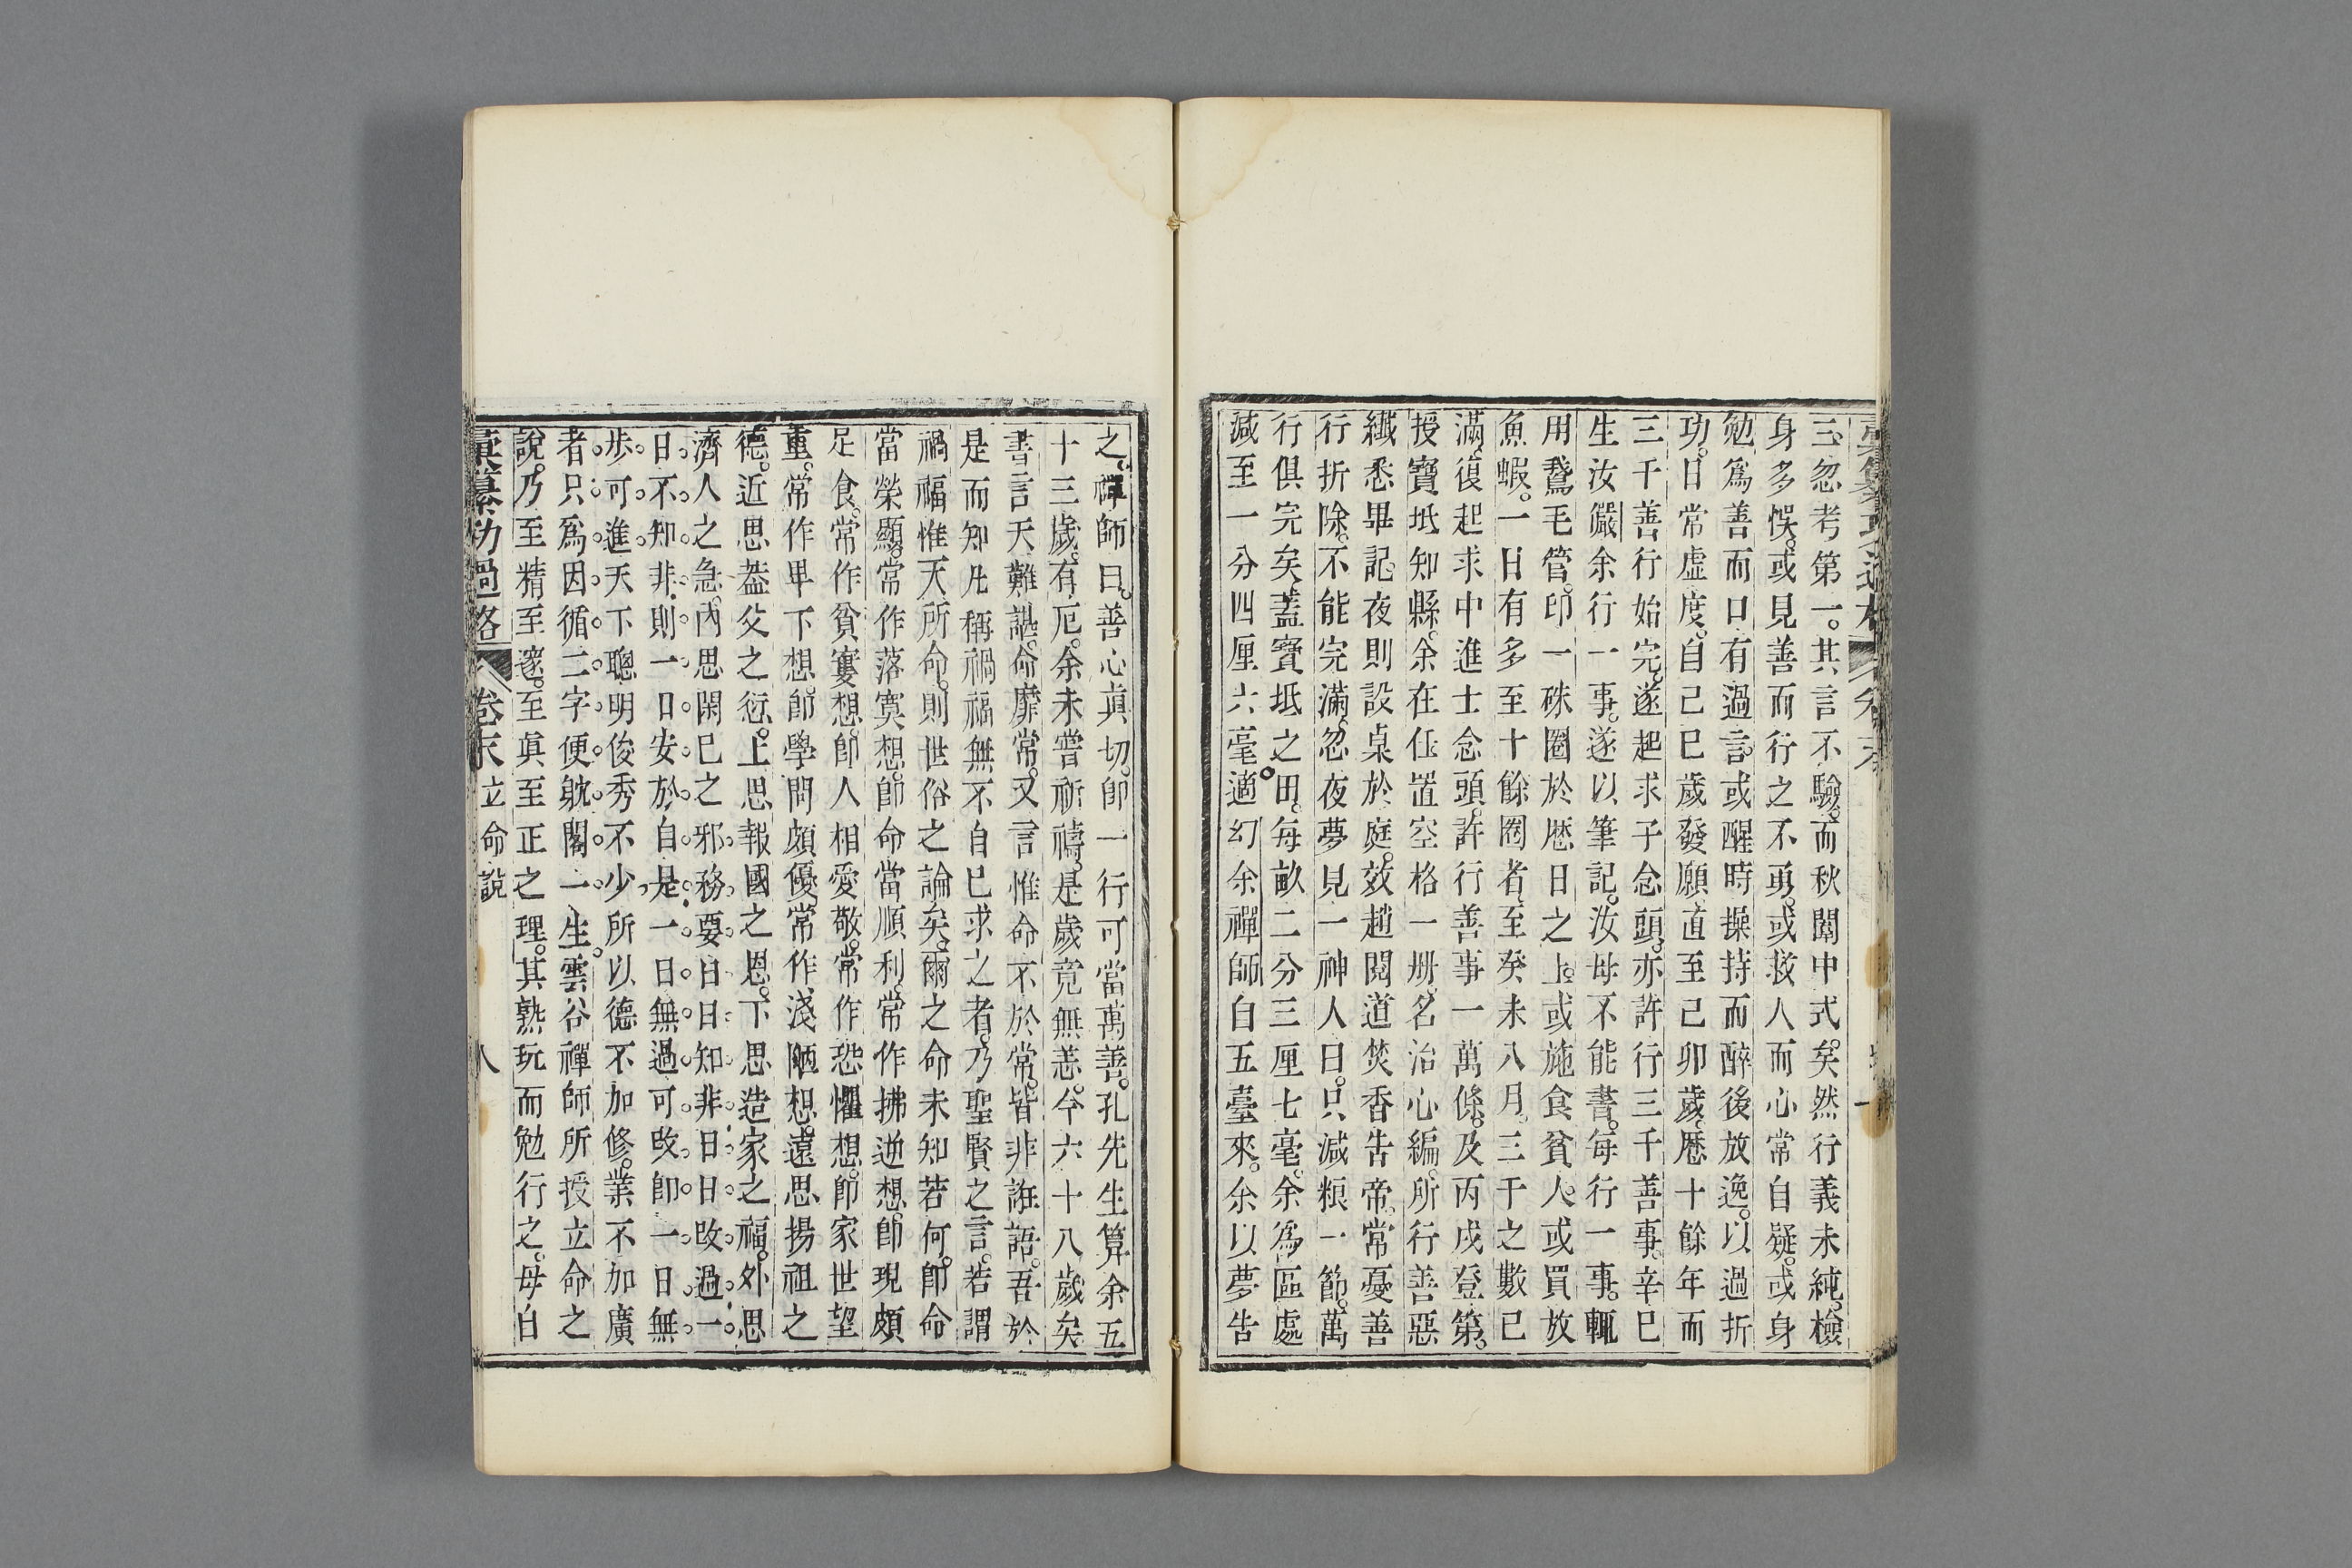 三忽考第一。其言不驗。而秋闈中式。矣然行義未純。檢
身多悞。或見善而行之不勇。或救人而心常自疑。或身
勉爲善而口有過言。或醒時操持而醉後放逸。以過折
功。日常虛度。自己巳歲發願。直至己卯歲。歷十餘年而
三千善行始完。遂起求子念頭。亦許行三千善事。辛巳
生汝儼余行一事。遂以筆記。汝母不能書。每行一事。輒
用鵞毛管。印一硃圈於歷日之上。或施食貧人。或買放
魚蝦。一日有多至十餘圈者。至癸未八月。三千之數已
滿。復起求中進士念頭。許行善事一萬條。及丙戌登第。
授寶坻知縣。余在任置空格一册。名治心編。所行善惡
纖悉畢記。夜則設桌於庭。效趙閱道焚香告帝。常憂善
行折除。不能完滿。忽夜夢見一神人曰。只減粮一節。萬
行俱完矣。蓋寶坻之田。每畝二分三厘七毫。余爲區處
減至一分四厘六毫。適幻余禪師自五臺來。余以夢告
之。禪師曰。善心眞切。即一行可當萬善。孔先生算余五
十三歲。有厄。余未嘗祈禱。是歲竟無恙。今六十八歲矣
書言天難諶。命靡常。又言惟命不於常。皆非誑語。吾於
是而知凡稱禍福無不自已求之者。乃聖賢之言。若謂
禍福惟天所命。則世俗之論矣。爾之命未知若何。即命
當榮顯。常作落寞想。即命當順利。常作拂逆想。即現頗
足食。常作貧窶想。即人相愛敬。常作恐懼想。即家世望
重。常作卑下想。即學問頗優。常作淺陋想。遠思揚祖之
德。近思葢父之愆。上思報國之恩。下思造家之福。外思
濟人之急。內思閑巳之邪。務要日日知非。日日改過。一
日不知非。則一日安於自是。一日無過可改。即一日無
步可進。天下聰明俊秀不少。所以德不加修。業不加廣
者。只爲因循二字。便躭閣一生。雲谷禪師所授立命之
說。乃至精至邃。至眞至正之理。其熟玩而勉行之。毋自
彙纂功過格 卷末 立命說 八